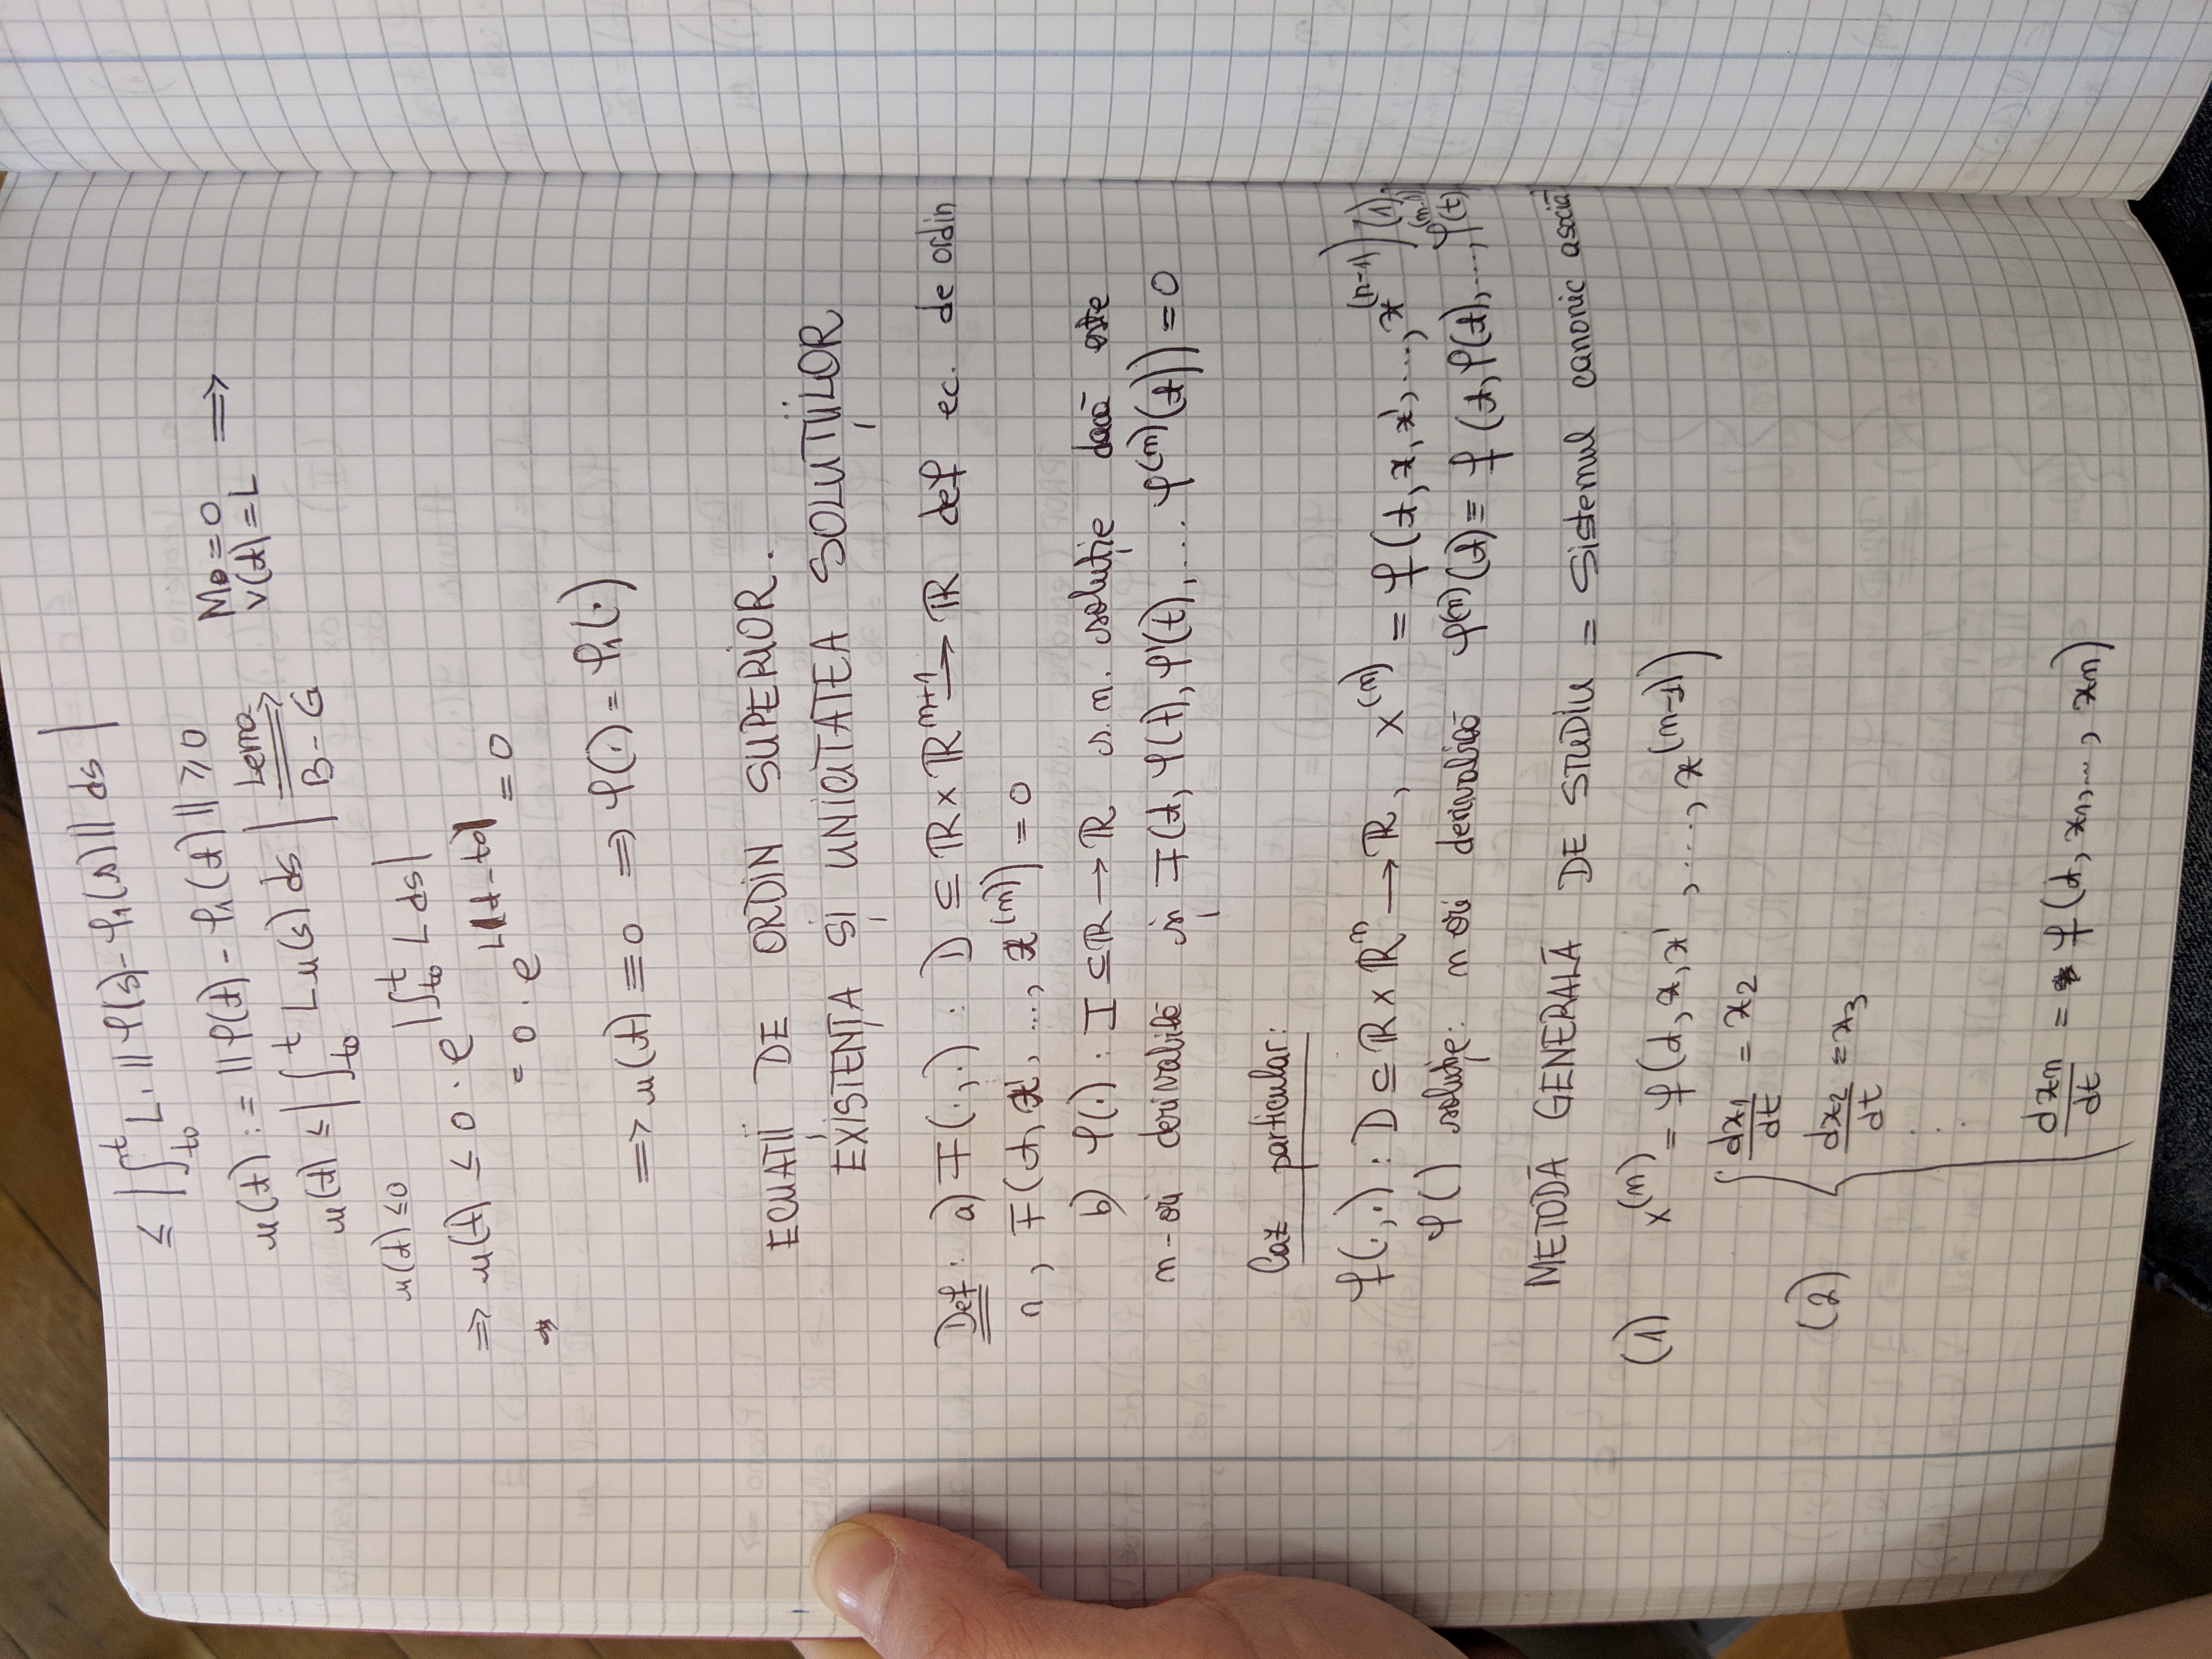 ≤ |∫_{t0}^{t} L · ||φ(s) - φ1(s)|| ds|
u(t) := ||φ(t) - φ1(t)|| ≥ 0
u(t) ≤ |∫_{t0}^{t} L u(s) ds| Lema ⟹ B-G M0 = 0 v(t) = L ⟹
u(t) ≤ 0
⟹ u(t) ≤ 0 · e^{|∫_{t0}^{t} L ds|}
= 0 · e^{L|t-t0|} = 0
⟹ u(t) ≡ 0 ⟹ φ(·) = φ1(·)
ECUAȚII DE ORDIN SUPERIOR.
EXISTENȚA ȘI UNICITATEA SOLUȚIILOR
Def: a) F(·,·) : D ⊆ ℝ × ℝ^{n+1} → ℝ def ec. de ordin
n, F(t, x', ..., x^{(n)}) = 0
b) φ(·) : I ⊆ ℝ → ℝ s.n. soluție dacă este
n-ori derivabilă și F(t, φ(t), φ'(t), ... φ^{(n)}(t)) = 0
Caz particular:
f(·,·) : D ⊆ ℝ × ℝ^n → ℝ, x^{(n)} = f(t, x, x', ..., x^{(n-1)}) (1)
φ() soluție: n ori derivabilă φ^{(n)}(t) = f(t, φ(t), ..., φ^{(n-1)}(t)
METODĂ GENERALĂ DE STUDIU = Sistemul canonic asociat
(1) x^{(n)} = f(t, x, x', ..., x^{(n-1)})
(2) { dx1/dt = x2
dx2/dt = x3
.
.
dxn/dt = f(t, x1, ..., xn)